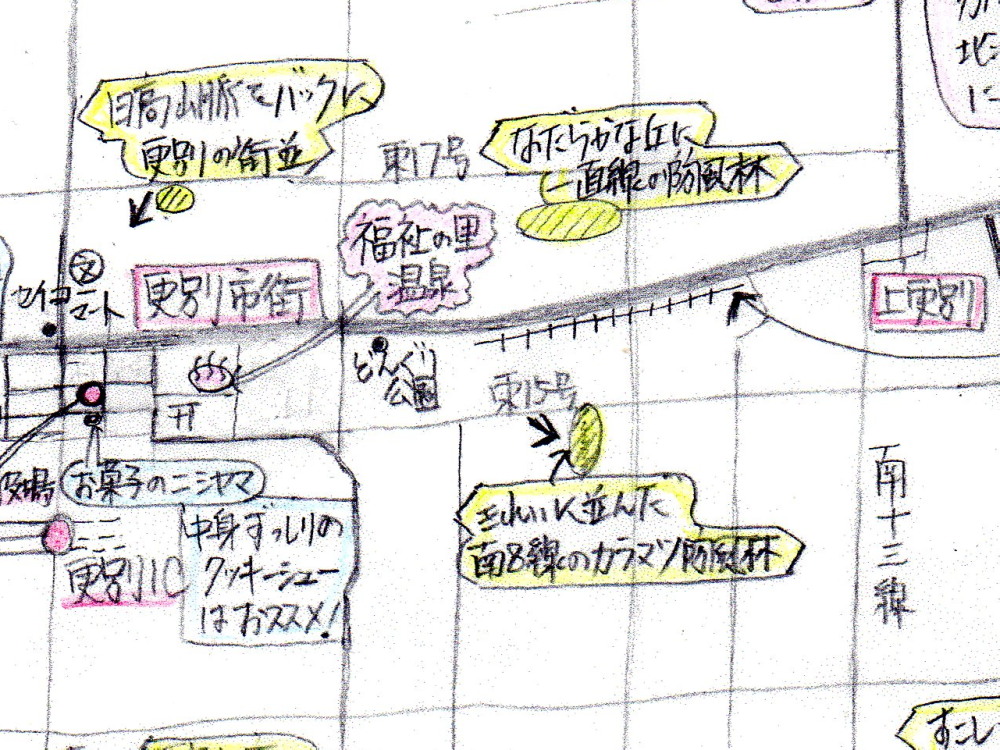 日高山脈をバックに
更別の街並
東17号
なだらかな丘に
一直線の防風林
福祉の里
温泉
文
セイコーマート
更別市街
上更別
どんぐり
公園
東15号
役場
お菓子のニシヤマ
中身ずっしりの
クッキーシュー
はおススメ!
更別IC
きれいに並んだ
南8線のカラマツ防風林
南十三線
北海
に
すこし